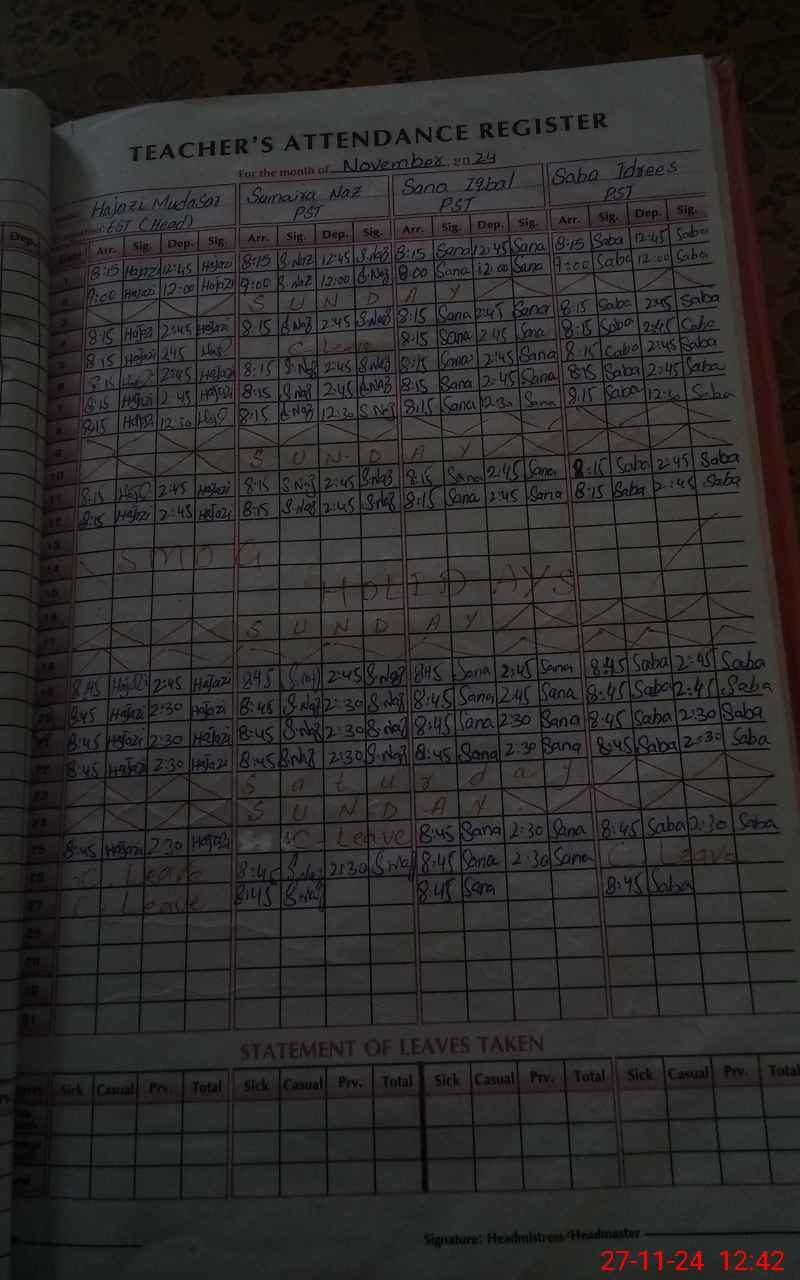 TEACHER'S ATTENDANCE REGISTER
For the month of November 2024
Hajazi Mudasar Sumaira Naz Sana Iqbal Saba Idrees
EST (Head) PST PST PST
Dep. Arr. Sig. Dep. Sig. Arr. Sig. Dep. Sig. Arr. Sig. Dep. Sig. Arr. Sig. Dep. Sig.
8:15 Hajazi 12:45 Hajazi 8:15 S.Naz 12:45 S.Naz 8:15 Sana 12:45 Sana 8:15 Saba 12:45 Saba
9:00 Hajazi 12:00 Hajazi 9:00 S.Naz 12:00 S.Naz 9:00 Sana 12:00 Sana 9:00 Saba 12:00 Saba
3 SUNDAY
4 8:15 Hajazi 2:45 Hajazi 8:15 S.Naz 2:45 S.Naz 8:15 Sana 2:45 Sana 8:15 Saba 2:45 Saba
5 8:15 Hajazi 2:45 C-Leave 8:15 Sana 2:45 Sana 8:15 Saba 2:45 Saba
6 8:15 2:45 Hajazi 8:15 S.Naz 2:45 S.Naz 8:15 Sana 2:45 Sana 8:15 Saba 2:45 Saba
7 8:15 Hajazi 2:45 Hajazi 8:15 S.Naz 2:45 S.Naz 8:15 Sana 2:45 Sana 8:15 Saba 2:45 Saba
8 8:15 Hajazi 12:30 8:15 S.Naz 12:30 S.Naz 8:15 Sana 12:30 Sana 8:15 Saba 12:30 Saba
9
10 SUNDAY
11 8:15 2:45 Hajazi 8:15 S.Naz 2:45 S.Naz 8:15 Sana 2:45 Sana 8:15 Saba 2:45 Saba
12 8:15 Hajazi 2:45 Hajazi 8:15 S.Naz 2:45 S.Naz 8:15 Sana 2:45 Sana 8:15 Saba 2:45 Saba
13
14 SMOG
15 HOLIDAYS
16
17 SUNDAY
18
19 8:45 Hajazi 2:45 Hajazi 8:45 S.Naz 2:45 S.Naz 8:45 Sana 2:45 Sana 8:45 Saba 2:45 Saba
20 8:45 Hajazi 2:30 Hajazi 8:45 S.Naz 2:30 S.Naz 8:45 Sana 2:45 Sana 8:45 Saba 2:45 Saba
21 8:45 Hajazi 2:30 Hajazi 8:45 S.Naz 2:30 S.Naz 8:45 Sana 2:30 Sana 8:45 Saba 2:30 Saba
22 8:45 Hajazi 2:30 Hajazi 8:45 S.Naz 2:30 S.Naz 8:45 Sana 2:30 Sana 8:45 Saba 2:30 Saba
23 Saturday
24 SUNDAY
25 8:45 Hajazi 2:30 Hajazi C-Leave 8:45 Sana 2:30 Sana 8:45 Saba 2:30 Saba
26 C. Leave 8:45 S.Naz 2:30 S.Naz 8:45 Sana 2:30 Sana C Leave
27 C Leave 8:45 S.Naz 8:45 Sana 8:45 Saba
28
29
30
31
STATEMENT OF LEAVES TAKEN
Sick Casual Prv. Total Sick Casual Prv. Total Sick Casual Prv. Total Sick Casual Prv. Total
Signature: Headmistress/Headmaster
27-11-24 12:42